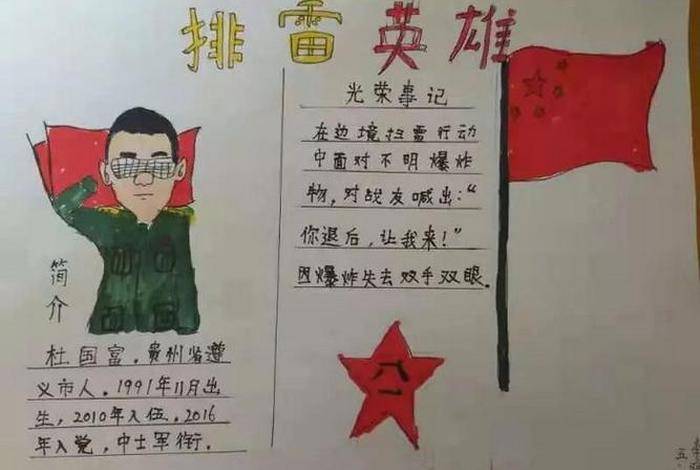 排雷英雄
光荣事记
在边境扫雷行动
中面对不明爆炸
物，对战友喊出：“
你退后，让我来！”
因爆炸失去双手双眼。
简介
杜国富，贵州省遵
义市人。1991年11月出
生，2010年入伍，2016
年入党，中士军衔。
八一
五